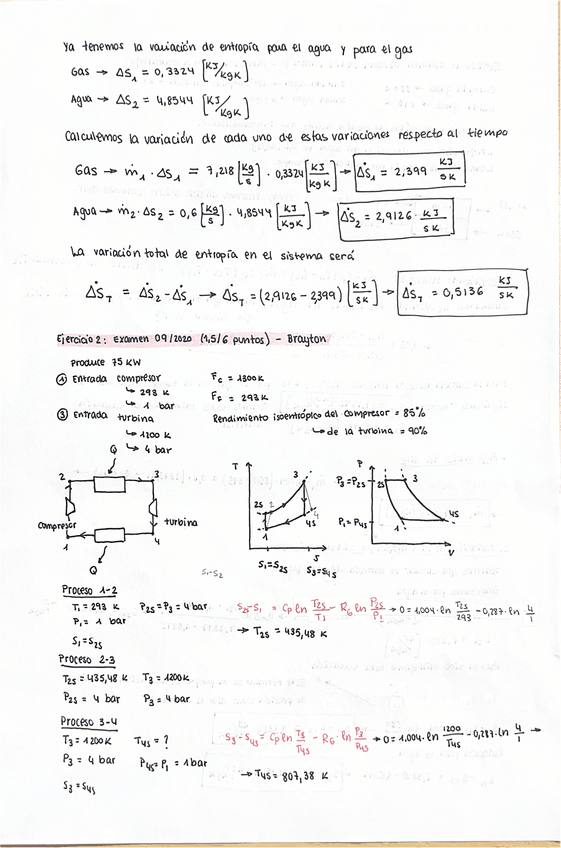 Ya tenemos la variación de entropía para el agua y para el gas
Gas → ΔS₁ = 0,3324 [KJ/KgK]
Agua → ΔS₂ = 4,8544 [KJ/KgK]
Calculemos la variación de cada uno de estas variaciones respecto al tiempo
Gas → ṁ₁ · ΔS₁ = 7,218 [Kg/s] · 0,3324 [KJ/KgK] → ΔṠ₁ = 2,399 KJ/sK
Agua → ṁ₂ · ΔS₂ = 0,6 [Kg/s] · 4,8544 [KJ/KgK] → ΔṠ₂ = 2,9126 KJ/sK
La variación total de entropía en el sistema será
ΔṠT = ΔṠ₂ - ΔṠ₁ → ΔṠT = (2,9126 - 2,399) [KJ/sK] → ΔṠT = 0,5136 KJ/sK
Ejercicio 2: Examen 09/2020 (1,5/6 puntos) - Brayton
Produce 75 KW
① Entrada compresor Fc = 1300K
↳ 293 K FF = 293K
↳ 1 bar
③ Entrada turbina Rendimiento isoentrópico del compresor = 85%
↳ 1200 K ↳ de la turbina = 90%
↳ 4 bar
Q
2 3
compresor turbina
1 4
Q
T
3
2S 2
4S 4
1
S
S₁=S₂s S₃=S₄s
P
P₃=P₂s 2S 3
P₁=P₄s 1 4S
V
S₁-S₂
Proceso 1-2
T₁ = 293 K P₂s = P₃ = 4 bar S₂s-S₁ = Cp ln T₂s/T₁ - RG ln P₂s/P₁ → 0 = 1,004 · ln T₂s/293 - 0,287 · ln 4/1
P₁ = 1 bar → T₂s = 435,48 K
S₁ = S₂s
Proceso 2-3
T₂s = 435,48 K T₃ = 1200K
P₂s = 4 bar P₃ = 4 bar
Proceso 3-4
T₃ = 1200K T₄s = ? S₃ - S₄s = Cp ln T₃/T₄s - RG · ln P₃/P₄s → 0 = 1,004 · ln 1200/T₄s - 0,287 · ln 4/1 →
P₃ = 4 bar P₄s = P₁ = 1 bar → T₄s = 807,38 K
S₃ = S₄s